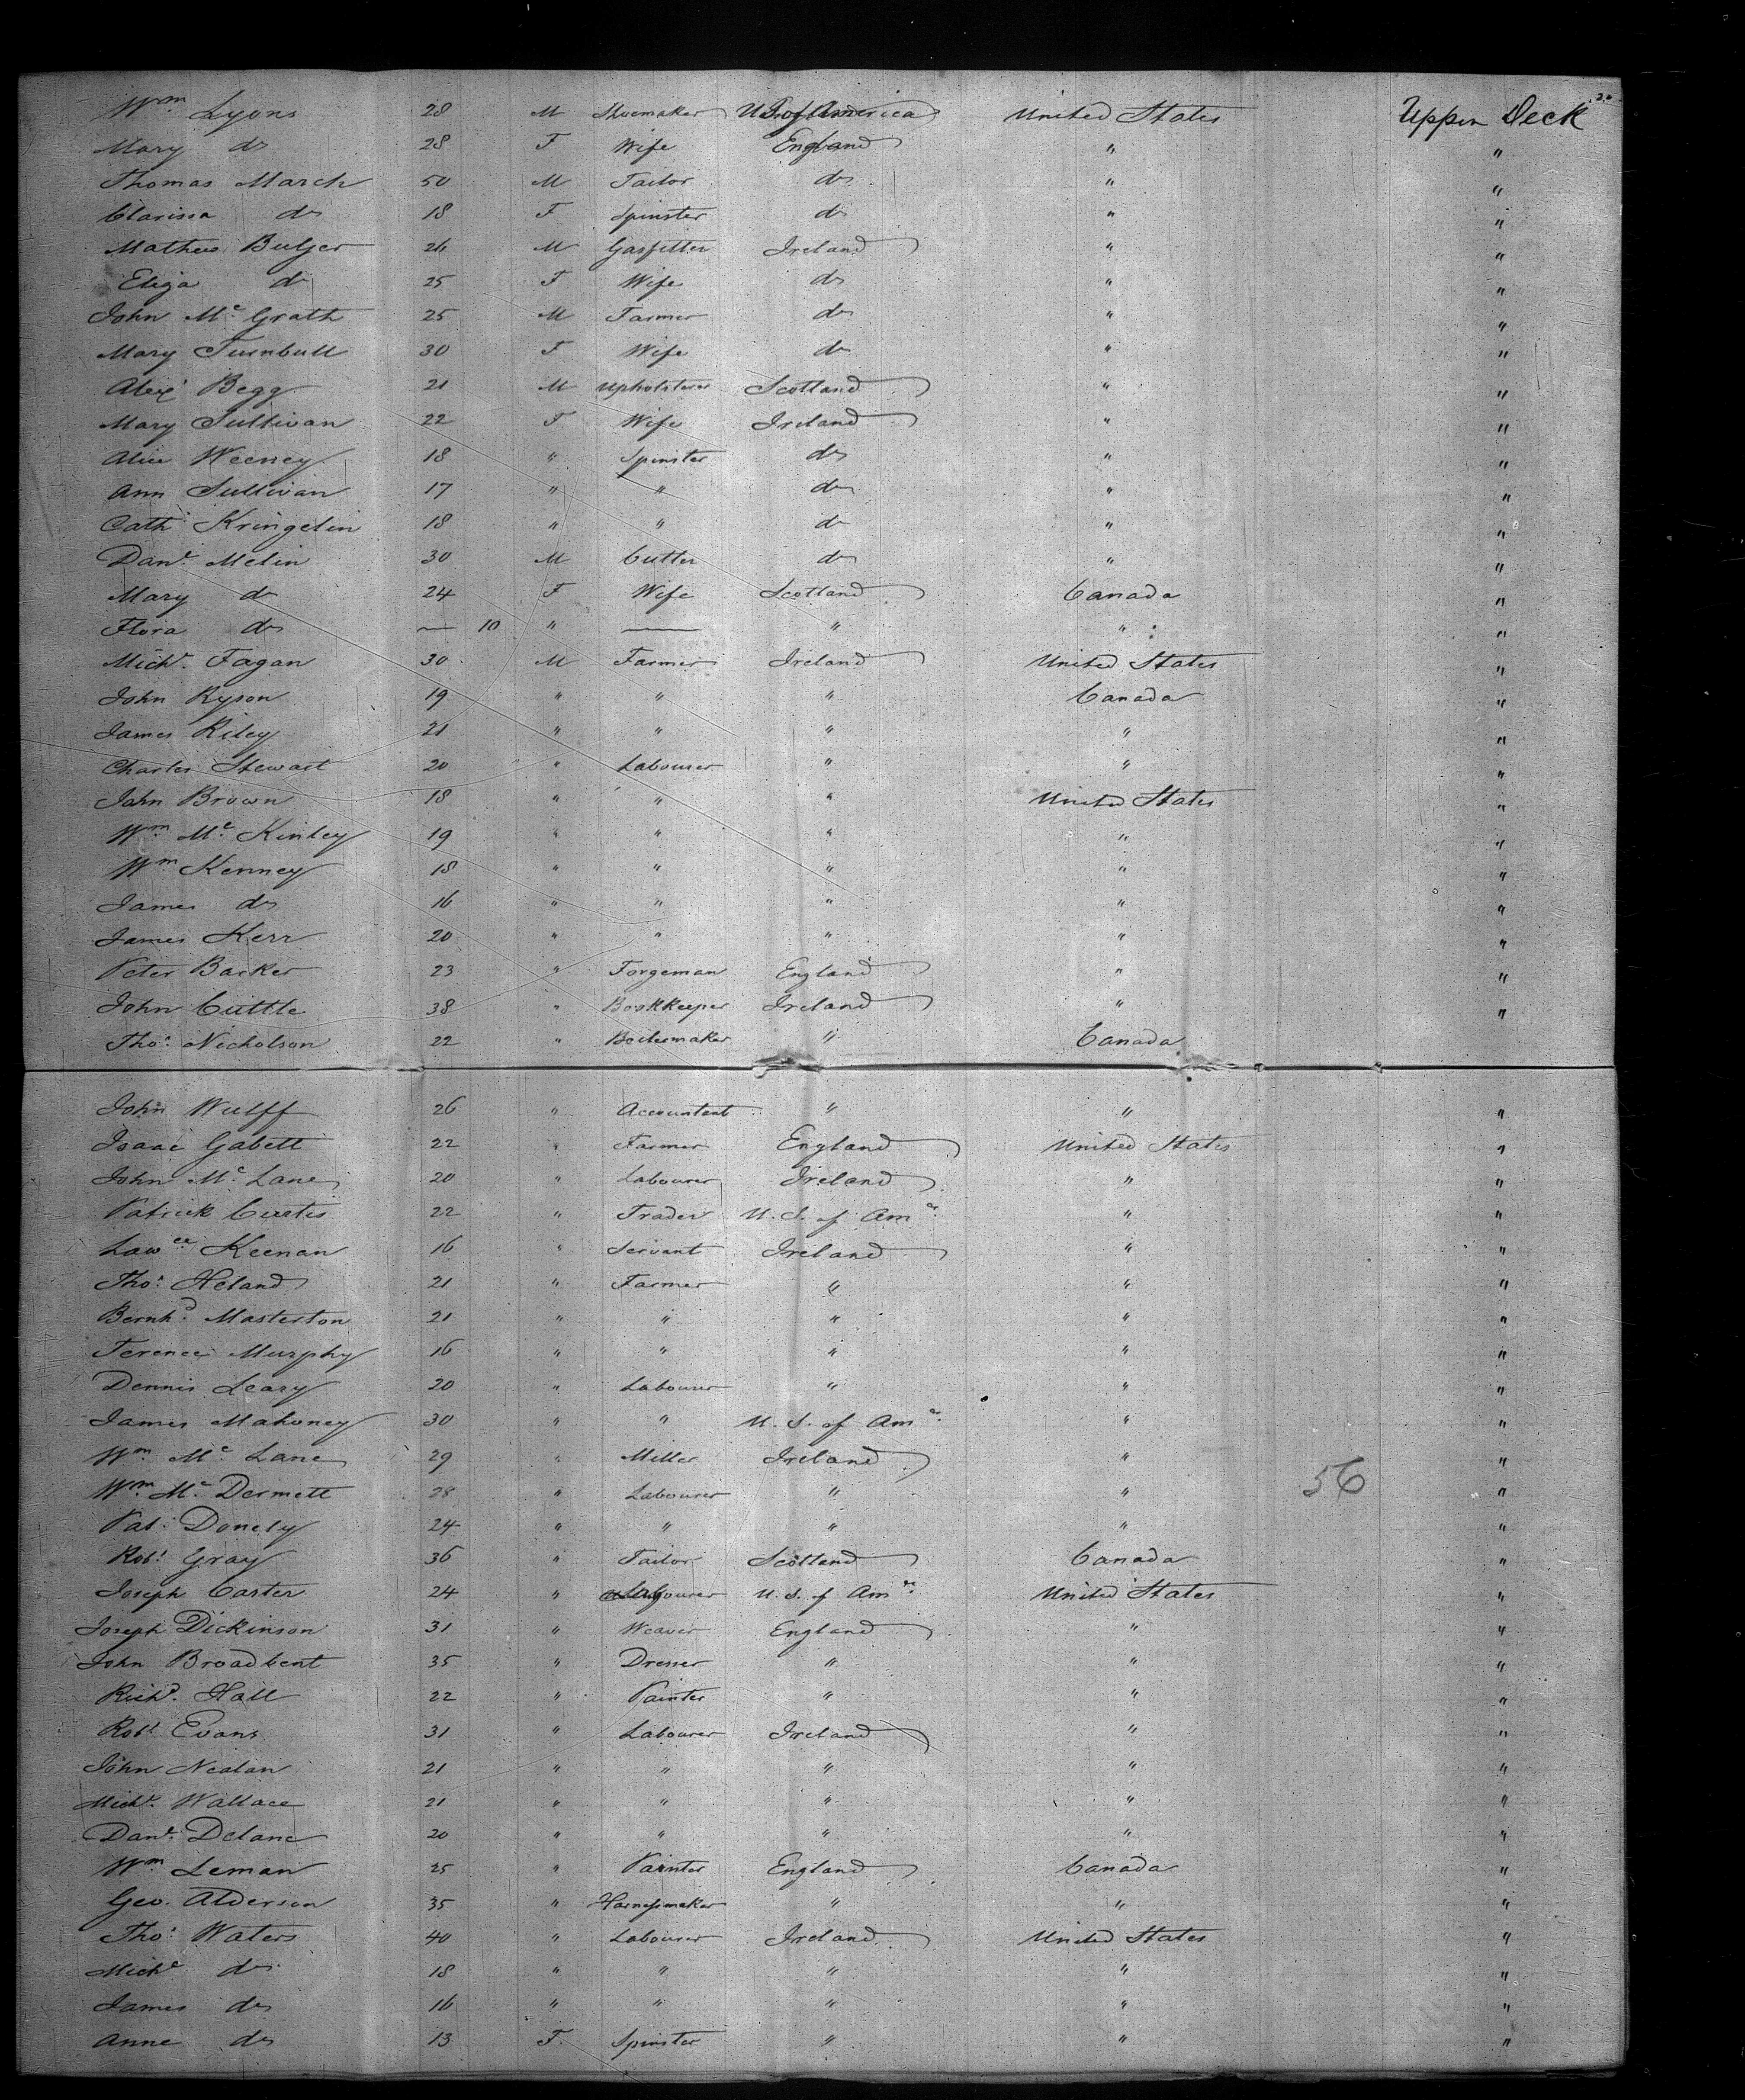 Wm Lyons 28 M Shoemaker U S of America United States Upper Deck
Mary do 28 F Wife England " "
Thomas March 50 M Tailor do " "
Clarissa do 18 F Spinster do " "
Mathew Bulger 26 M Gasfitter Ireland " "
Eliza do 25 F Wife do " "
John Mc Grath 25 M Farmer do " "
Mary Turnbull 30 F Wife do " "
Alexr Begg 21 M Upholsterer Scotland " "
Mary Sullivan 22 F Wife Ireland " "
Alice Weeney 18 " Spinster do " "
Ann Sullivan 17 " " do " "
Cath Kringelin 18 " " do " "
Danl Melin 30 M Cutter do " "
Mary do 24 F Wife Scotland Canada "
Flora do — 10 " — " " "
Michl Fagan 30 M Farmer Ireland United States "
John Ryson 19 " " " Canada "
James Riley 21 " " " " "
Charles Stewart 20 " Labourer " " "
John Brown 18 " " " United States "
Wm Mc Kinley 19 " " " " "
Wm Kenney 18 " " " " "
James do 16 " " " " "
James Kerr 20 " " " " "
Peter Barker 23 " Forgeman England " "
John Cuttle 38 " Bookkeeper Ireland " "
Thos Nicholson 22 " Boilermaker " Canada
John Wulff 26 " Accountant " " "
Isaac Gabett 22 " Farmer England United States "
John Mc Lane 20 " Labourer Ireland " "
Patrick Curtis 22 " Trader U. S. of Ama " "
Lawce Keenan 16 " Servant Ireland " "
Thos Heland 21 " Farmer " " "
Bernhd Masterton 21 " " " " "
Terence Murphy 16 " " " " "
Dennis Leary 20 " Labourer " " "
James Mahoney 30 " " U. S. of Ama " "
Wm Mc Lane 29 " Miller Ireland " "
Wm Mc Dermett 28 " Labourer " " 56 "
Pat Donely 24 " " " " "
Robt Gray 36 " Tailor Scotland Canada "
Joseph Carter 24 " Labourer U. S. of Ama United States "
Joseph Dickinson 31 " Weaver England " "
John Broadbent 35 " Dresser " " "
Richd Hall 22 " Painter " " "
Robt Evans 31 " Labourer Ireland " "
John Nealan 21 " " " " "
Michl Wallace 21 " " " " "
Danl Delane 20 " " " " "
Wm Leman 25 " Painter England Canada "
Geo. Alderson 35 " Harnessmaker " " "
Thos Waters 40 " Labourer Ireland United States "
Michl do 18 " " " " "
James do 16 " " " " "
Anne do 13 F Spinster " " "